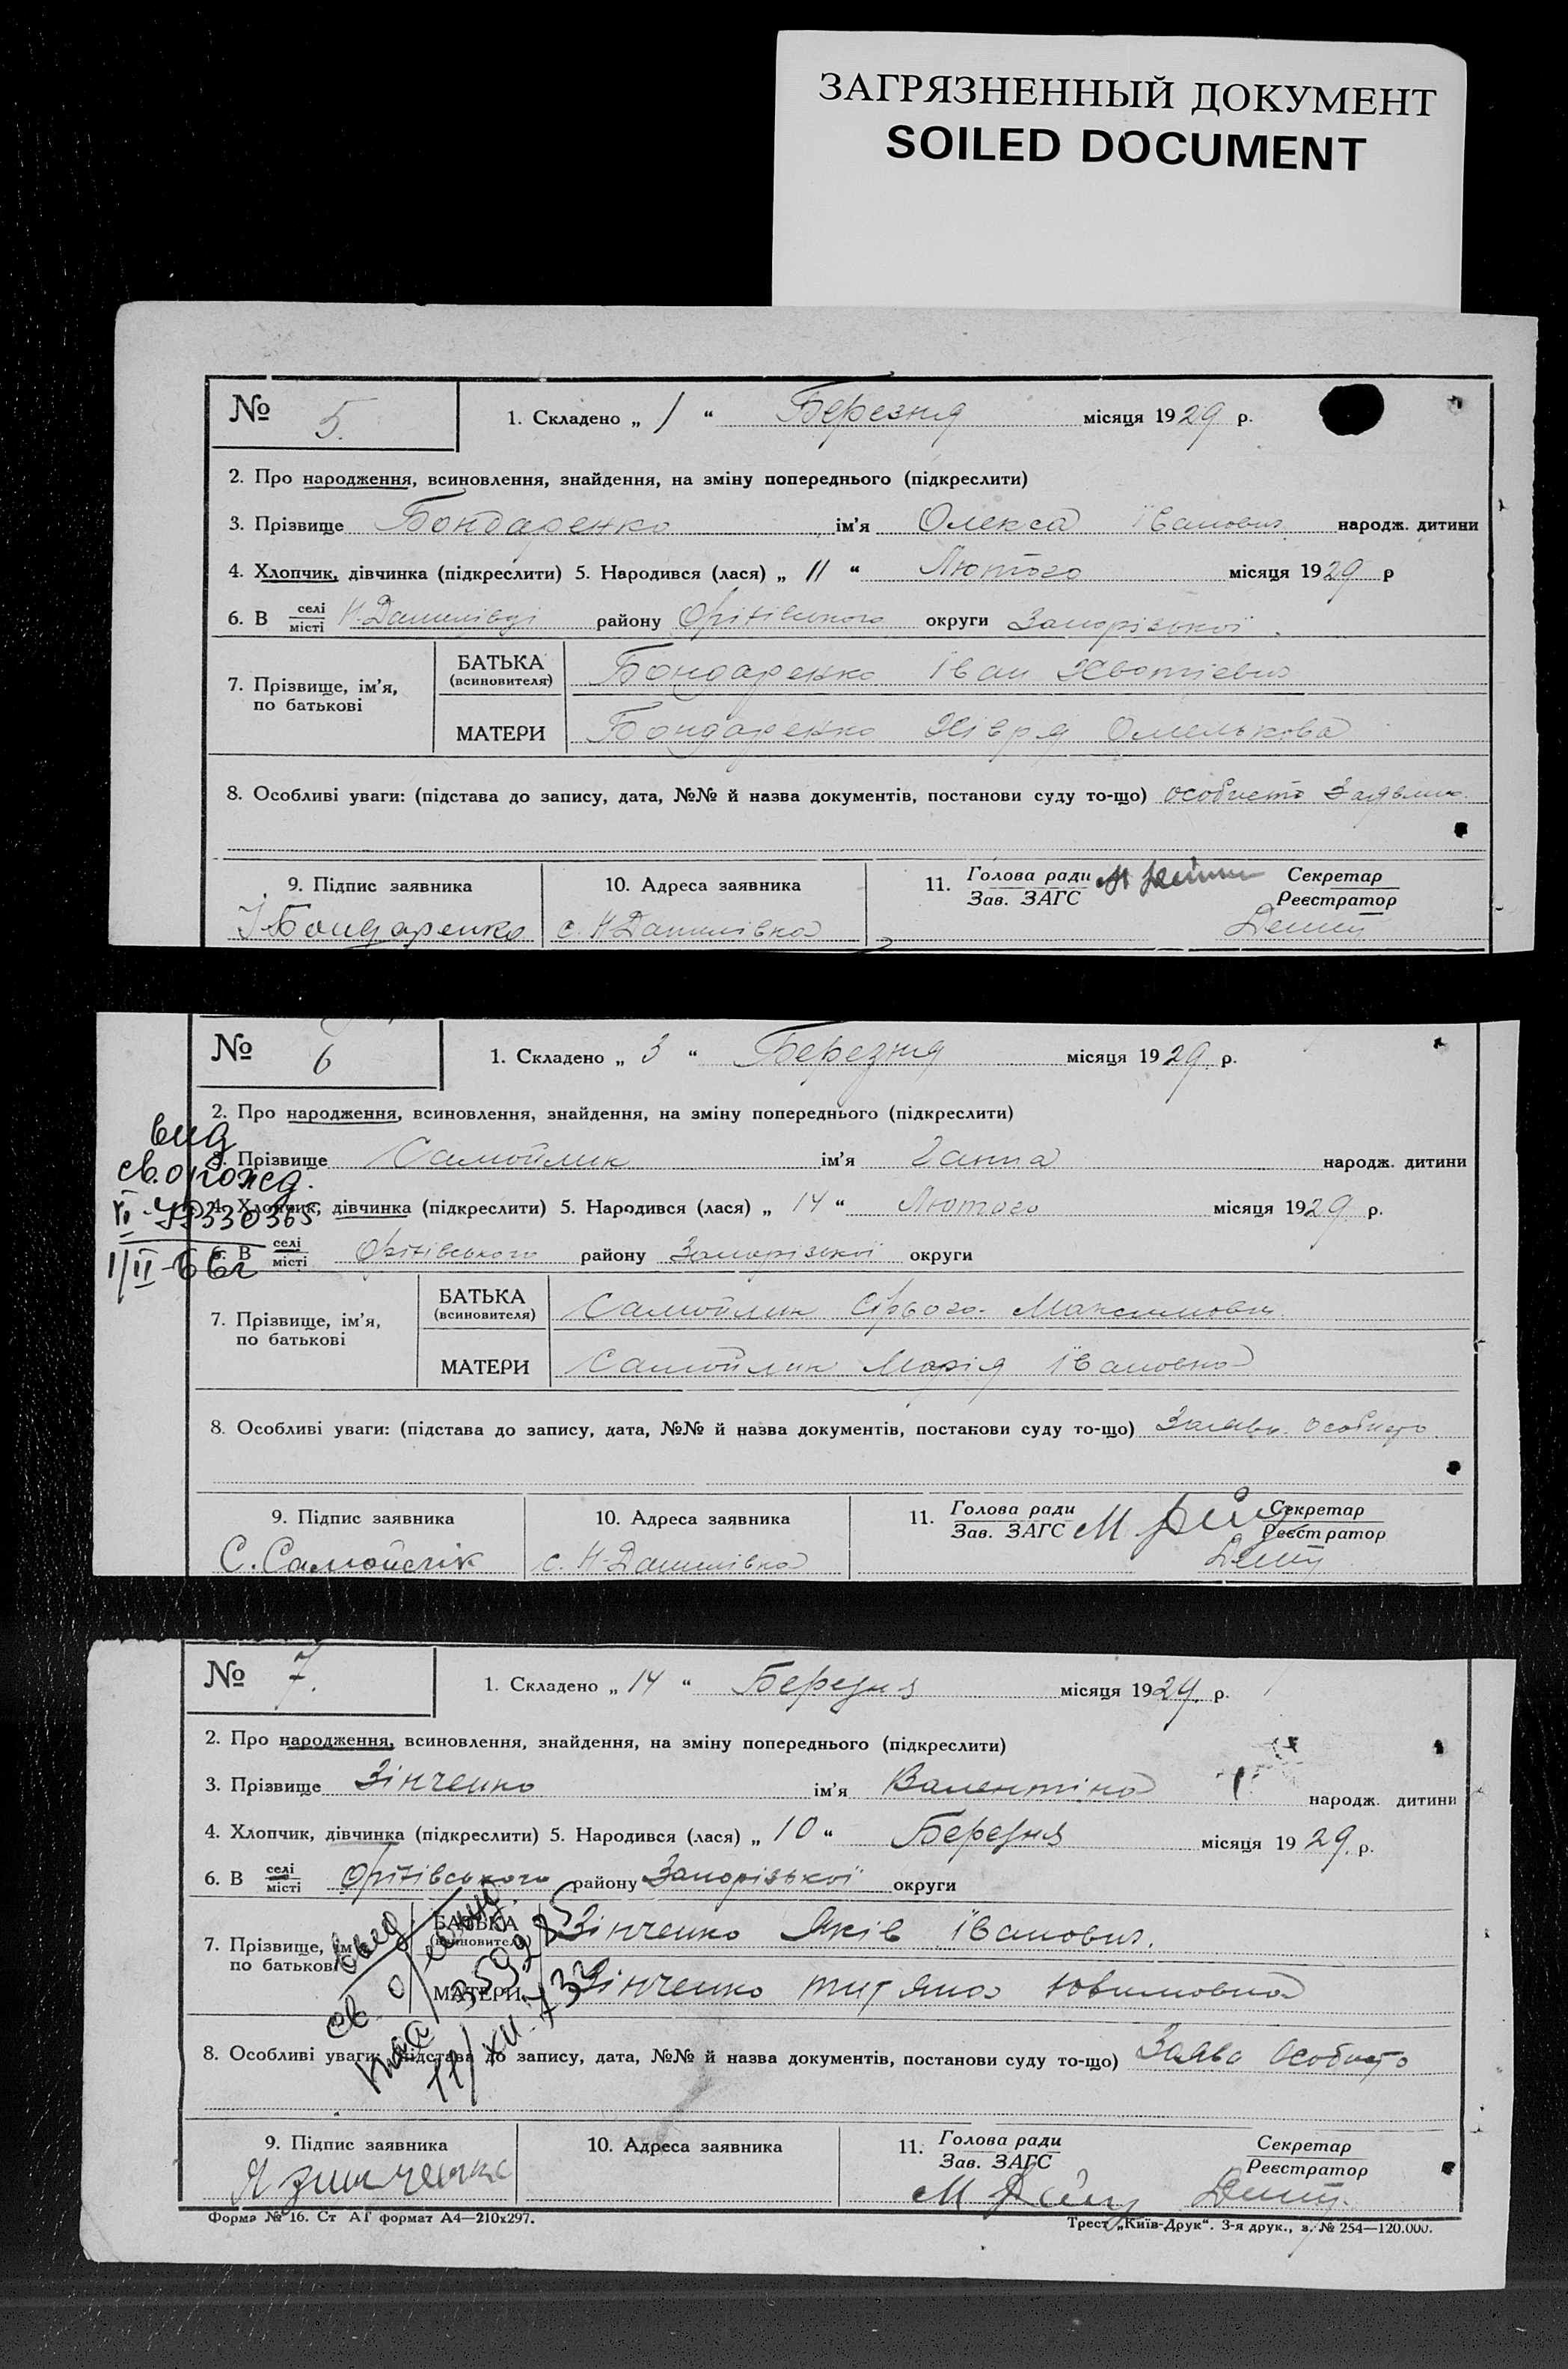 ЗАГРЯЗНЕННЫЙ ДОКУМЕНТ
SOILED DOCUMENT
№ 5. 1. Складено „ 1 “ Березня місяця 1929 р.
2. Про народження, всиновлення, знайдення, на зміну попереднього (підкреслити)
3. Прізвище Бондаренко ім'я Олекса Іванович народж. дитини
4. Хлопчик, дівчинка (підкреслити) 5. Народився (лася) „ 11 “ Лютого місяця 1929 р
6. В селі місті Н-Данилівці району Оріхівського округи Запорізької
7. Прізвище, ім'я, по батькові
БАТЬКА (всиновителя) Бондаренко Іван
МАТЕРИ Бондаренко Хівря Омелькова
8. Особливі уваги: (підстава до запису, дата, №№ й назва документів, постанови суду то-що) особисто
9. Підпис заявника 10. Адреса заявника 11. Голова ради Зав. ЗАГС Секретар Реєстратор
І. Бондаренко с. Н-Данилівка
№ 6 1. Складено „ 3 “ Березня місяця 1929 р.
2. Про народження, всиновлення, знайдення, на зміну попереднього (підкреслити)
3. Прізвище Самойлик ім'я Ганна народж. дитини
4. Хлопчик, дівчинка (підкреслити) 5. Народився (лася) „ 14 “ Лютого місяця 1929 р.
6. В селі місті Оріхівського району Запорізької округи
7. Прізвище, ім'я, по батькові
БАТЬКА (всиновителя) Самойлик
МАТЕРИ Самойлик Марія Івановна
8. Особливі уваги: (підстава до запису, дата, №№ й назва документів, постанови суду то-що) особисто
9. Підпис заявника 10. Адреса заявника 11. Голова ради Зав. ЗАГС Секретар Реєстратор
С. Самойлік с. Н-Данилівка
№ 7. 1. Складено „ 14 “ Березня місяця 1929. р.
2. Про народження, всиновлення, знайдення, на зміну попереднього (підкреслити)
3. Прізвище Зінченко ім'я Валентіна народж. дитини
4. Хлопчик, дівчинка (підкреслити) 5. Народився (лася) „ 10 “ Березня місяця 1929. р.
6. В селі місті Оріхівського району Запорізької округи
7. Прізвище, ім'я, по батькові
БАТЬКА (всиновителя) Зінченко Яків Іванович.
МАТЕРИ Зінченко Ювимовна
8. Особливі уваги: (підстава до запису, дата, №№ й назва документів, постанови суду то-що) Заява особисто
9. Підпис заявника 10. Адреса заявника 11. Голова ради Зав. ЗАГС Секретар Реєстратор
Форма № 16. Ст АГ формат А4—210х297. Трест „Київ-Друк“. 3-я друк., з. № 254—120.000.